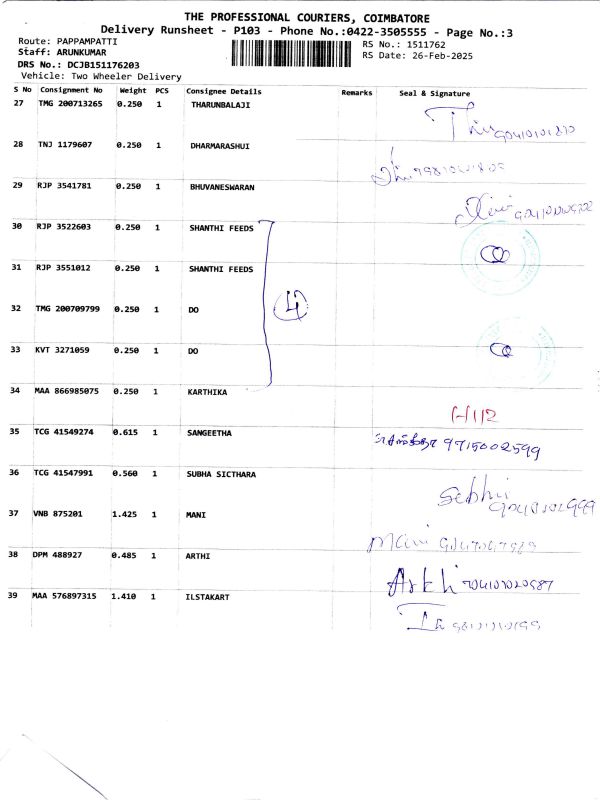 THE PROFESSIONAL COURIERS, COIMBATORE
Delivery Runsheet - P103 - Phone No.:0422-3505555 - Page No.:3
Route: PAPPAMPATTI
RS No.: 1511762
Staff: ARUNKUMAR
RS Date: 26-Feb-2025
DRS No.: DCJB151176203
Vehicle: Two Wheeler Delivery
S No Consignment No Weight PCS Consignee Details Remarks Seal & Signature
27 TMG 200713265 0.250 1 THARUNBALAJI
28 TNJ 1179607 0.250 1 DHARMARASHUI
29 RJP 3541781 0.250 1 BHUVANESWARAN
30 RJP 3522603 0.250 1 SHANTHI FEEDS
31 RJP 3551012 0.250 1 SHANTHI FEEDS
4
32 TMG 200709799 0.250 1 DO
33 KVT 3271059 0.250 1 DO
34 MAA 866985075 0.250 1 KARTHIKA
35 TCG 41549274 0.615 1 SANGEETHA 9715002599
36 TCG 41547991 0.560 1 SUBHA SICTHARA
37 VNB 875201 1.425 1 MANI
Mani
38 DPM 488927 0.485 1 ARTHI
Arthi
39 MAA 576897315 1.410 1 ILSTAKART